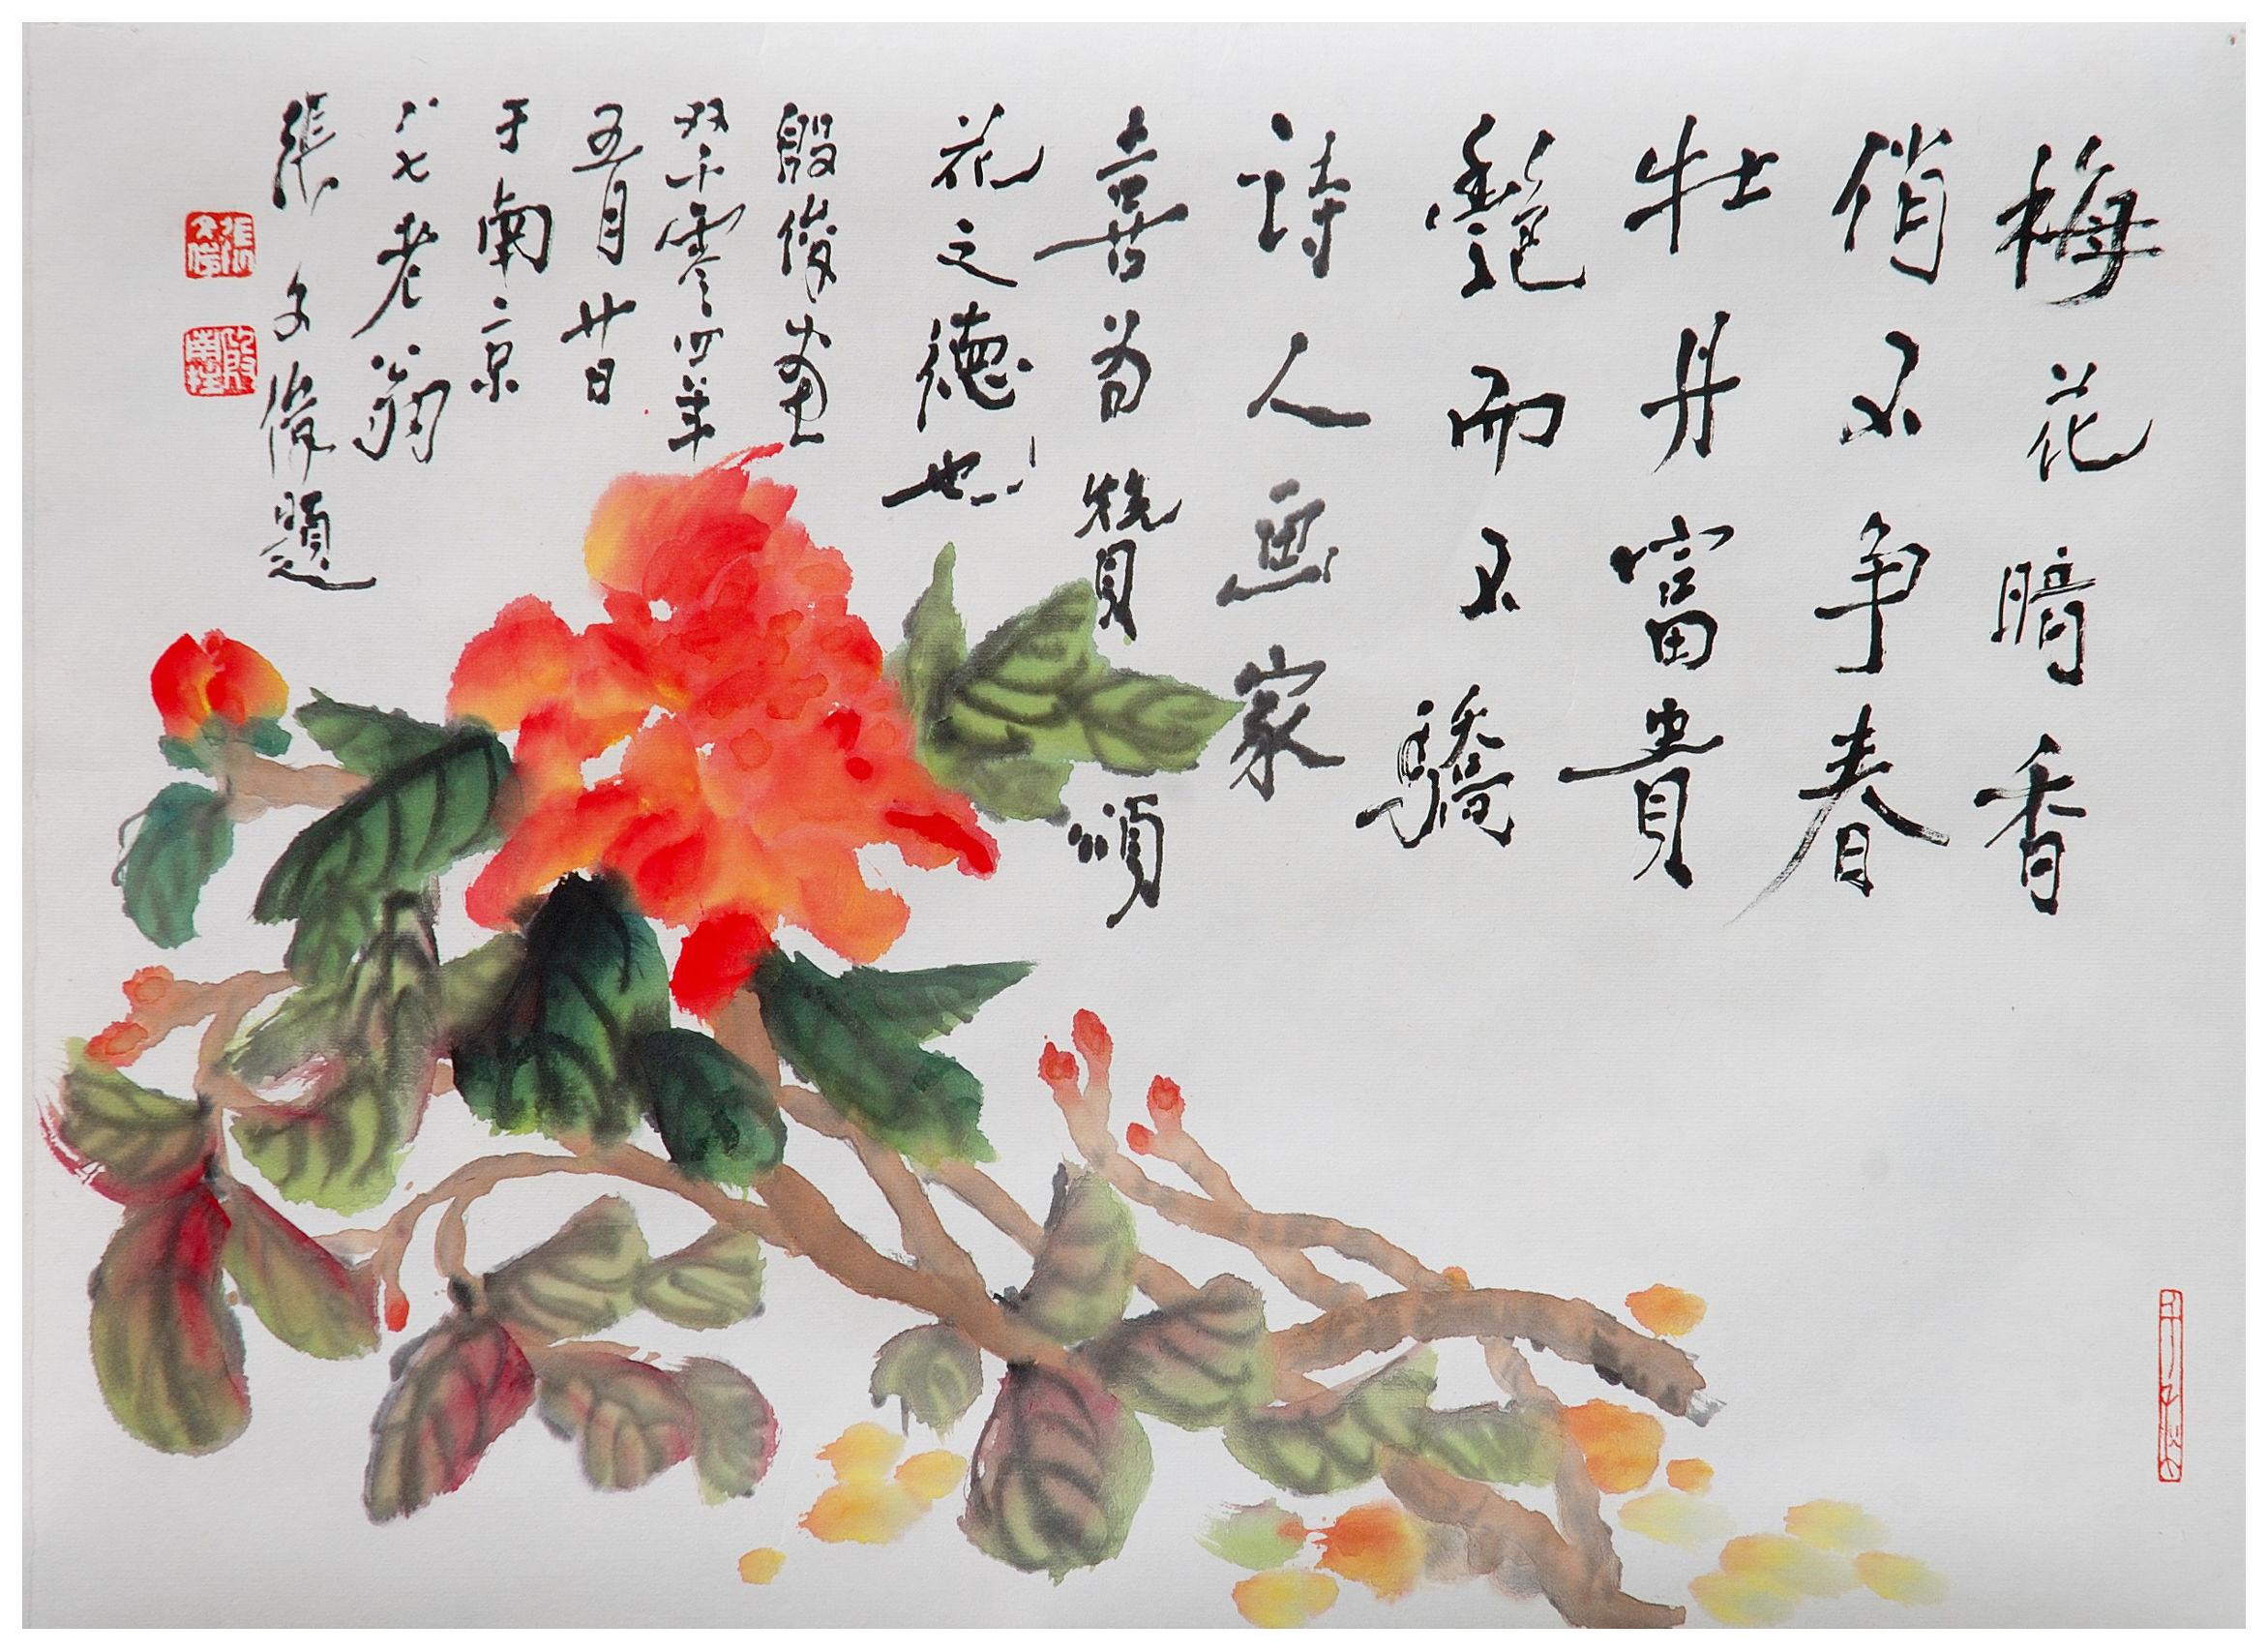 梅花暗香
俏不争春
牡丹富貴
艷而不驕
詩人画家
喜為贊頌
花之德也
殷俊畫
双千零四年
五月廿日
于南京
八七老翁
張文俊題
張文俊